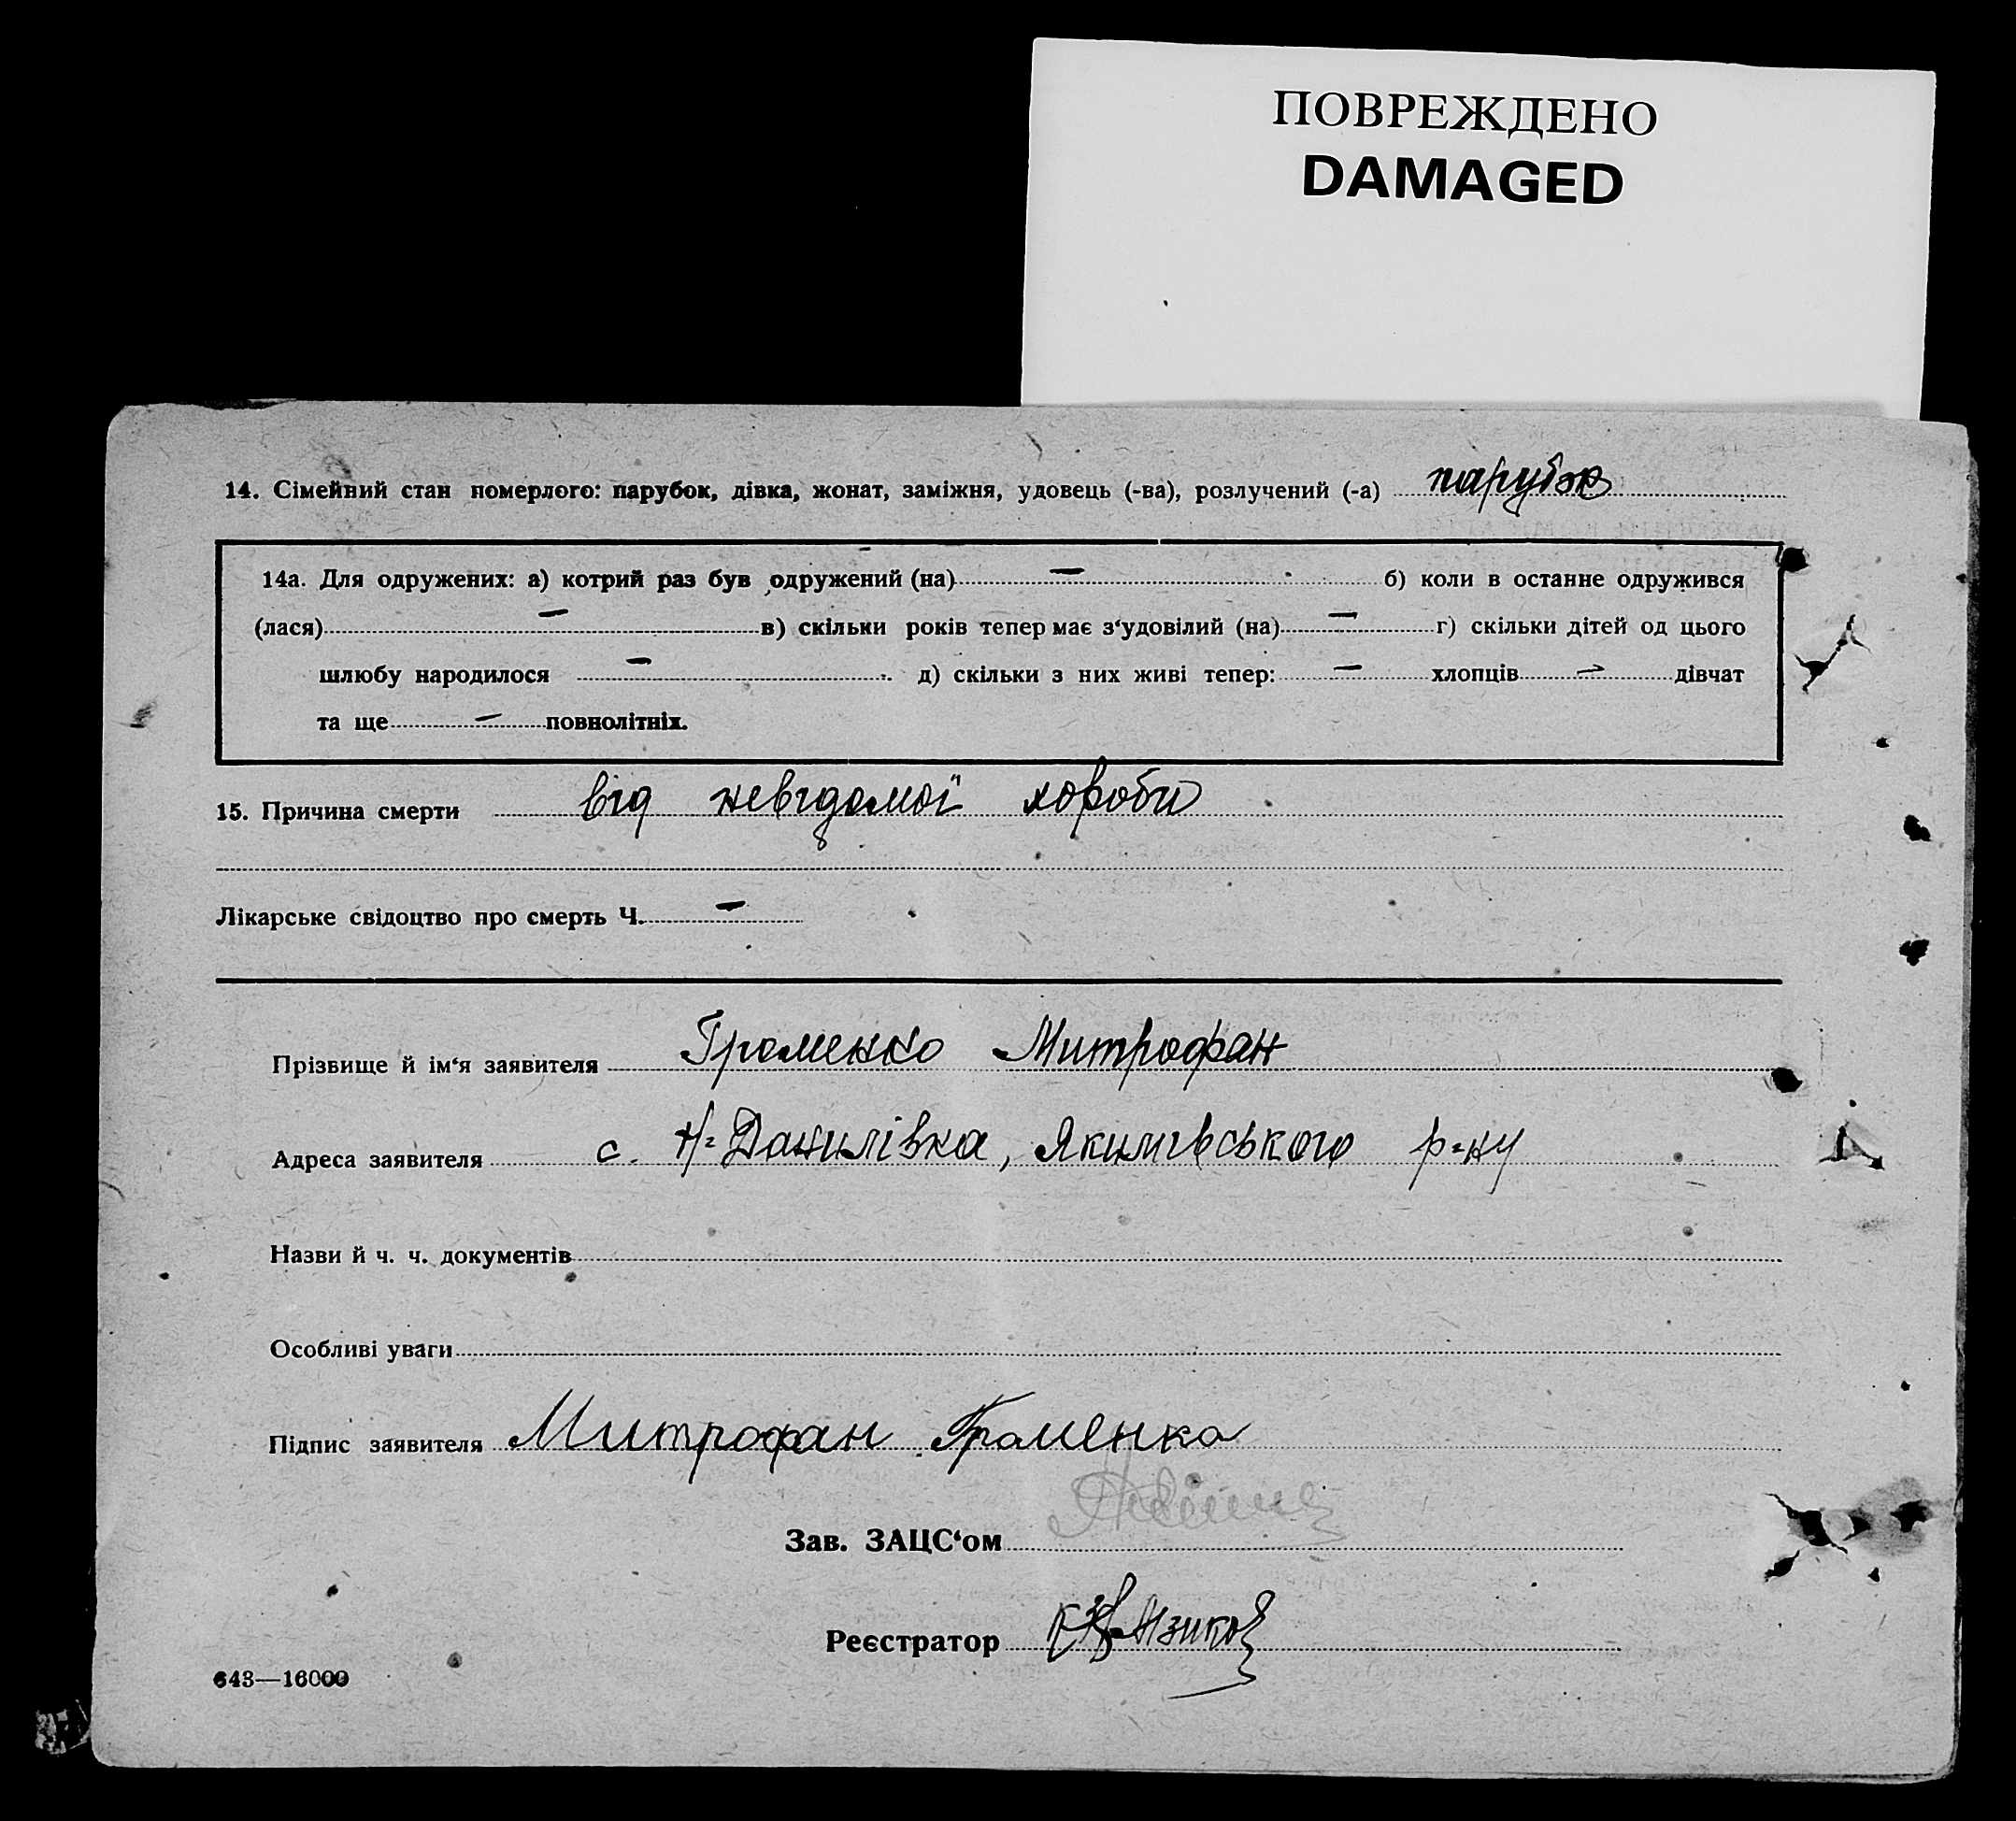 ПОВРЕЖДЕНО
DAMAGED
14. Сімейний стан померлого: парубок, дівка, жонат, заміжня, удовець (-ва), розлучений (-а) парубок
14а. Для одружених: а) котрий раз був одружений (на) — б) коли в останнє одружився
(лася) — в) скільки років тепер має з‘удовілий (на) — г) скільки дітей од цього
шлюбу народилося — д) скільки з них живі тепер: — хлопців — дівчат
та ще — повнолітніх.
15. Причина смерти від невідомої хороби
Лікарське свідоцтво про смерть Ч. —
Прізвище й ім‘я заявителя Граменко Митрофан
Адреса заявителя с. Н=Данилівка, Якимівського р=ну
Назви й ч. ч. документів
Особливі уваги
Підпис заявителя Митрофан Граменко
Зав. ЗАЦС‘ом
Реєстратор
643—16000